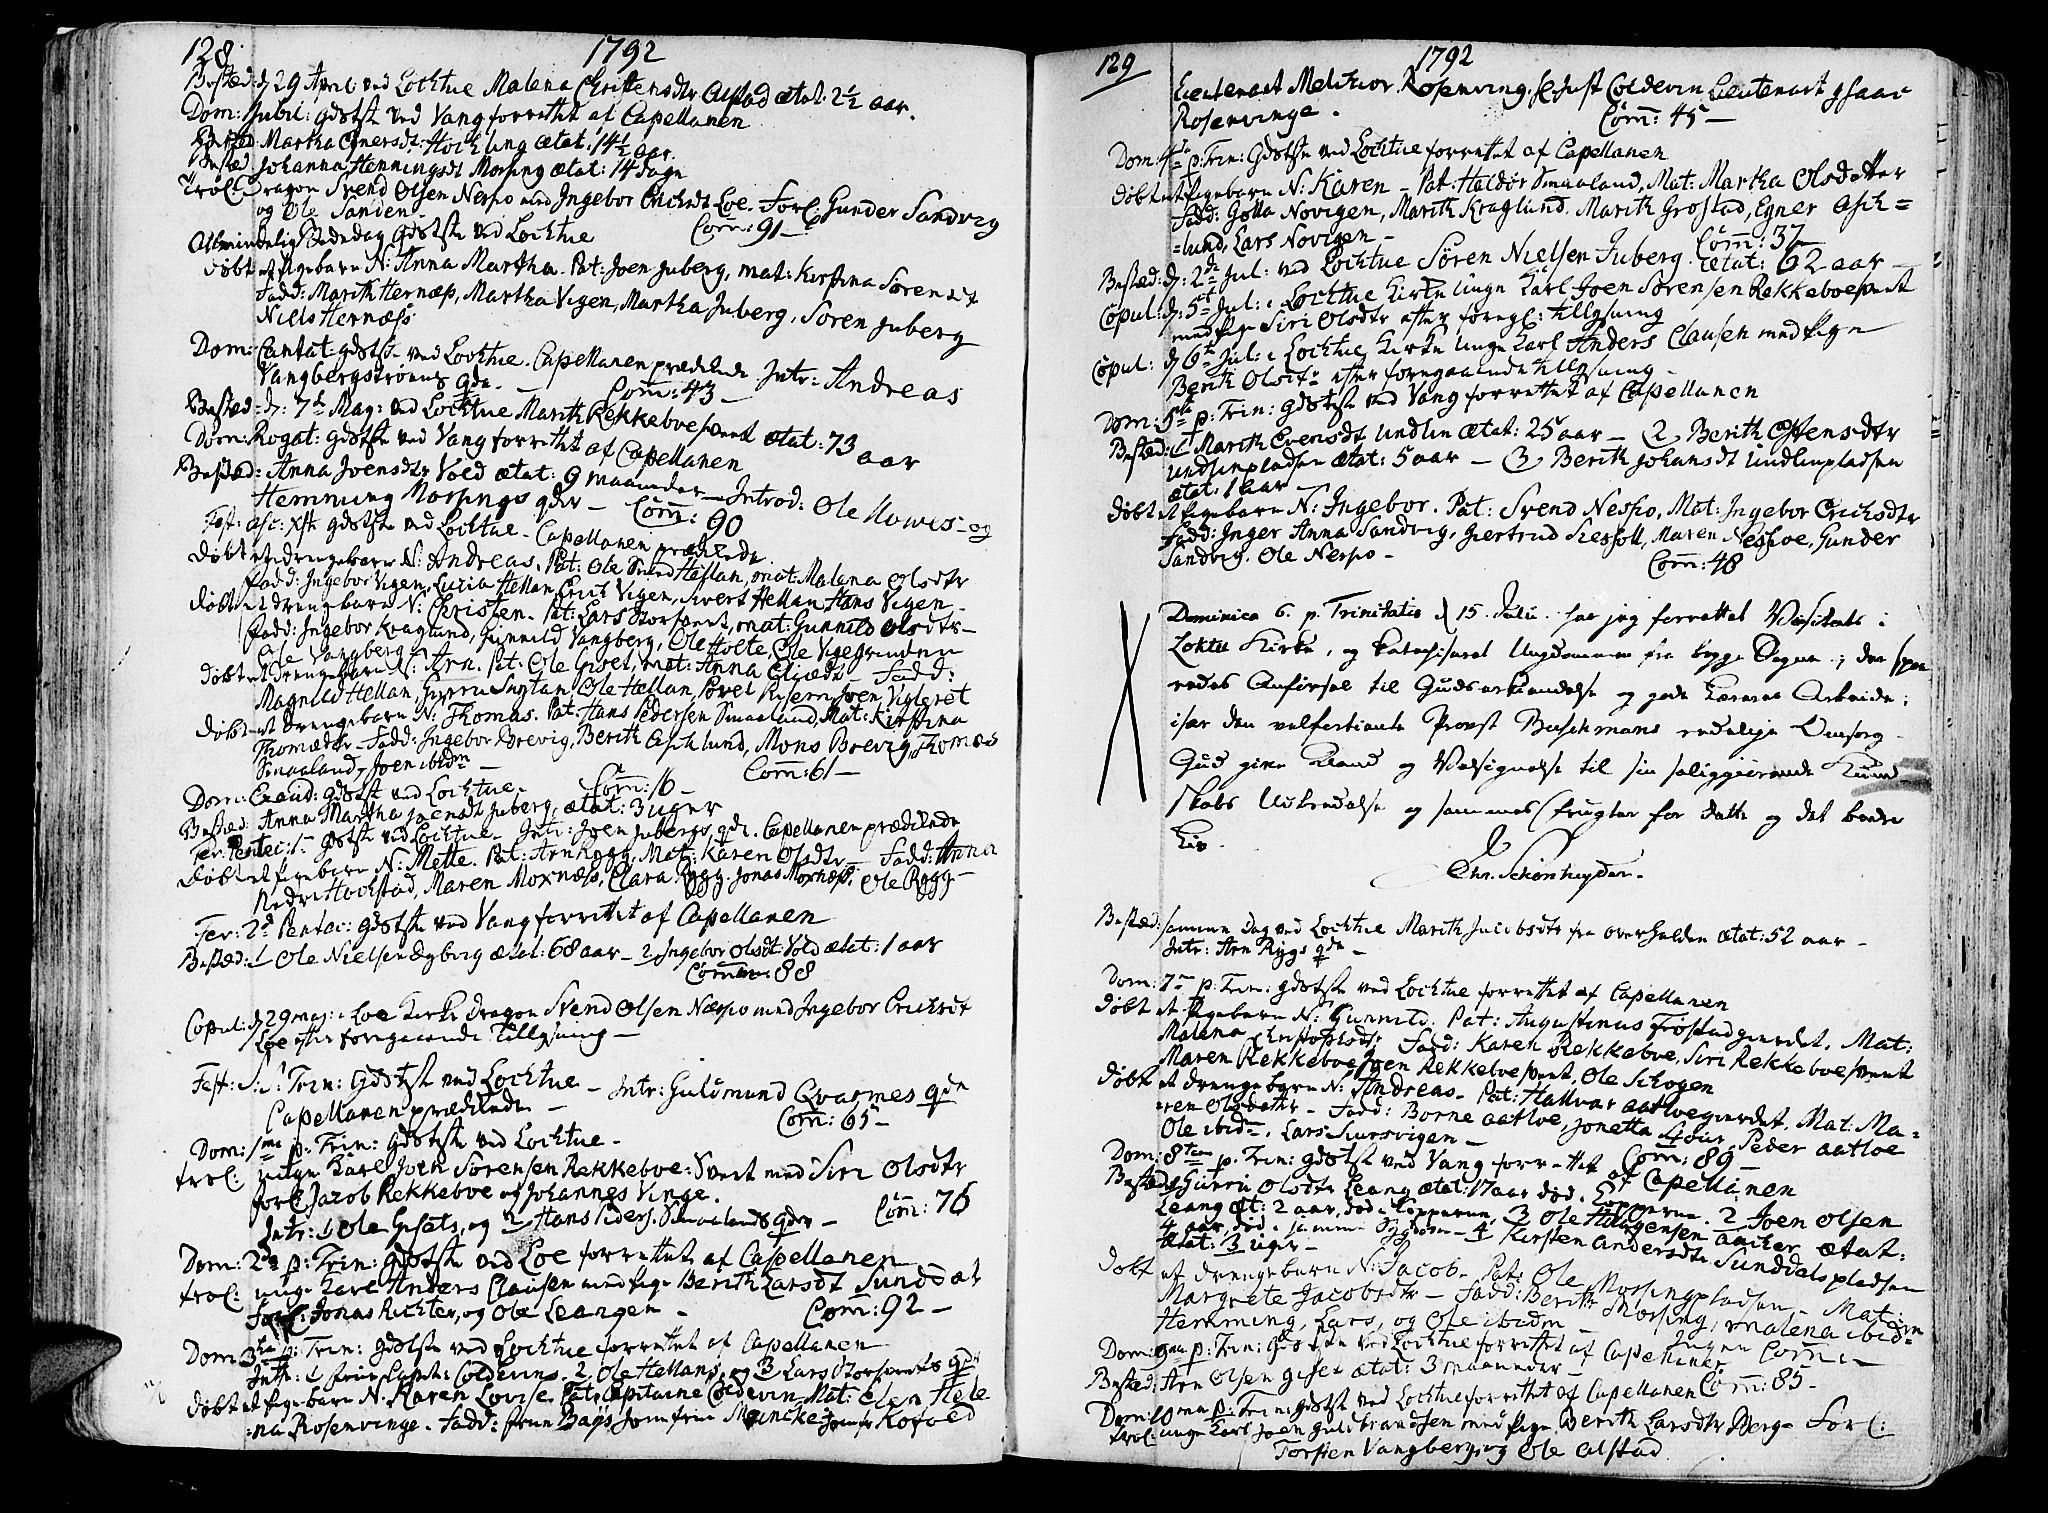 128. 1792
Bested: d 29 April ved Lochtue Malena Christensdtr Alstad ætat: 2 1/2 aar.
Dom: Jubil: gdstst ved Vang forrettet af Capellanen
Bested Martha Eynersdt: Hochlung ætat: 14 1/2 aar.
Bested Johanna Henningsdt Morsing ætat: 14 dage
Trol: Dragon Svend Olsen Nespo med Ingebor Erichsdt Loe. Forl: Gunder Sandvig
og Ole Sanden. Com: 91 -
Allmindelig Bededag gdstste ved Lochtue
døbt et Pigebarn N: Anna Martha. Pat: Joen Juberg, mat: Kirstina Sørensdt
Fadd: Marith Hernæs, Martha Vigen, Martha Juberg, Søren Juberg
Niels Hernæss
Dom: Cantat: gdstst ved Lochtue. Capellanen prædikede Intr: Andreas
Vangbergstrøens qde. - Com: 43 -
Bested: d: 7de May: ved Lochtue Marith Rekkeboesvent ætat: 73 aar
Dom: Rogat: gdstst ved Vang forrettet af Capellanen
Bested: Anna Joensdtr Vold ætat: 9 maaneder - Introd: Ole Mowis og
Hemming Morsings qder - Com: 90
Fest: asc: xsti gdstste ved Lochtue - Capellanen prædikede
døbt et drengebarn N: Andreas. Pat: Ole Hellan, mat: Malena Olsdtr
Fadd: Ingebor Vigen, Luzia Hellan, Erich Vigen, Sivert Hellan, Hans Vigen -
døbt et drengebarn N: Christen. Pat: Lars Storsvent, mat: Gunnild Olsdtr -
Fadd: Ingebor Kraglund, Gunnild Vangberg, Ole Holte, Ole Vigegrinden
Ole Vangberg -
døbt et drengebarn N: Arn. Pat: Ole Giset, mat: Anna - Fadd:
Magnild Hellan, Ole Hellan, Povel, Joen Vigleret
døbt et drengebarn N: Thomas. Pat: Hans Pedersen Smaaland, Mat: Kirstina
Thomædtr - Fadd: Ingebor Brevig, Berith Aschlund, Mons Brevig, Thomas
Smaaland, Joen ibidm - Com: 61 -
Dom: Exaud: gdstst ved Lochtue. Com: 16 -
Bested: Anna Martha Joensdt Juberg, ætat: 3 uger
Fer: Pentec: 1 gdstst ved Lochtue - Intr: Joen Jubergs qde. Capellanen prædikede
døbt et Pigebarn N: Mette. Pat: Arn Rygg, Mat: Karen Olsdtr - Fadd: Anna
Nedre Hochstad, Maren Moxnæss, Clara Rygg, Jonas Moxnæss, Ole Rygg -
Fer: 2d Pentec: gdstst ved Vang forrettet af Capellanen
Bested: 1 Ole Nielsen Dyborg ætat: 68 aar - 2 Ingebor Olsdt Vold ætat: 1 aar
Comm: 88
Copul: d 29 maj: i Loe Kirke Dragon Svend Olsen Nespo med Ingebor Erichsdt
Loe efter foregaaende Tillysning -
Fest: S: S: Trin: gdstst ved Lochtue - Intr: Guldmund Qvarmes qde
Capellanen prædikede - Com: 65 -
Dom: 1ma p: Trin: gdstste ved Lochtue -
trol: unge Karl Joen Sørensen Rekkeboe: Svent med Siri Olsdtr
forl: Jacob Rekkeboe og Johannes Vinge. Com: 76
Intr: 1 Ole Gisets, og 2 Hans Peders: Smaalands qder -
Dom: 2da p: Trin: gdstst ved Loe forrettet af Capellanen -
trol: unge Karl Anders Clausen med Pige Berith Larsdt Sunddal
Forl: Jonas Richter, og Ole Leangen - Com: 92 -
Dom: 3tia p: Trin: gdstste ved Lochtue forrettet af Capellanen
Intr: 1 frue Capit: Coldevins. 2 Ole Hellans, og 3 Lars Storsvents qder
døbt et Pigebarn N. Karen Lovise Pat: Capitaine Coldevin Mat: Elen Hele
=na Rosenvinge. Fadd: frue Bays, Jomfrue Meincke, Jomfr Kofoed
129 1792
Lieutenant Melchior Rosenving, Just Coldevin Lieutenant Isaac
Rosenvinge. Com: 45 -
Dom: 4ta p: Trin: Gdstste ved Lochtue forrettet af Capellanen
døbt et Pigebarn N: Karen - Pat: Haldor Smaaland, Mat: Martha Olsdatter
Fadd: Golla Novigen, Marith Kraglund. Marith Grostad, Egner Asch=
=lund, Lars Novigen - Com: 37
Bested: d: 2de Jul: ved Lochtue Søren Nielsen Juberg ætat: 62 aar -
Copul: d: 5te Jul: i Lochtue Kirke unge Karl Joen Sørensen Rekkeboesvent
med Pige Siri Olsdtr efter foreg: tillysning
Copul: d 6te Jul: i Lochtue Kirke unge Karl Anders Clausen med Pige
Berith Olsdtr efter foregaaende tillysning -
Dom: 5ta p: Trin: gdstste ved Vang forrettet af Capellanen
Bested: 1 Marith Evensdt Undlin ætat: 25 aar - 2 Berith Estensdtr
Undlinpladsen ætat: 5 aar - 3 Berith Johansdt Undlinpladsen
ætat: 1 aar -
døbt et Pigebarn N: Ingebor. Pat: Svend Nespo, Mat: Ingebor Erichsdtr
Fadd: Inger Anna Sandvig, Giertrud, Maren Nespoe, Gunder
Sandvig, Ole Nespo - Com: 48
Dominica 6. p. Trinitatis d 15. Julii har jeg forrettet Visitats i
Loktu Kirke, og katechiseret Ungdommen fra begge Sogne; der
redes Anførsel til Guds erkiendelse og gode Læreres Arbeide;
især den velfortiente Provst Buschmans redelige Omsorg
Gud give Naade og Velsignelse til sin saliggiørende Kund
skabs Udbredelse og sammes frugter for dette og det bedre
Liv.
Chr. Schønheyder.
Bested: samme Dag ved Lochtue Marith Jacobsdtr fra overhalden ætat: 52 aar -
Intr: Arn Ryggs qde -
Dom: 7ma p: Trin: gdstste ved Lochtue forrettet af Capellanen
døbt et Pigebarn N: Gunnild. Pat: Augustinus Frøstadgierdet. Mat:
Malena Christophsdtr Fadd: Karen Rekkeboe, Siri Rekkeboesvent
Maren Rekkeboe, Joen Rekkeboesvent, Ole Schogen
døbt et drengebarn N: Andreas - Pat: Hallvar aatloegierdet. Mat: Ma=
=ren Olsdatter - Fadd: Borne aatloe, Jonetta, Peder aatloe
Ole ibidm. Lars Siursvigen - Com: 89 -
Dom: 8tava p: Trin: gdstst ved Vang forrettet af Capellanen
Bested: 1 Guru Olsdtr Leang ætat: 17 aar død i Kopperne. 2 Joen Olsen
Leang æt: 2 aar, død i Kopperne, 3 Ole Helgensen aacher ætat:
4 aar, død i samme Sygdom - 4 Kirsten Andersdt Sunddalspladsen
ætat: 3 uger -
døbt et drengebarn N: Jacob. Pat: Ole Morsingpladsen - Mat:
Margrete Jacobsdtr - Fadd: Berith Morsing, Malena ibidm
Hemming, Lars, og Ole ibidm - Ingen Com: -
Dom: 9na p: Trin: Gdstste ved Lochtue forrettet af Capellanen
Bested: Arn Olsen Giset ætat: 3 maaneder - Com: 85 -
Dom: 10ma p: Trin: gdstst ved Lochtue forrettet af Capellanen
trol: unge Karl Joen Guldbrandsen med Pige Berith Larsdtr Berg - Forl:
Torsten Vangberg, og Ole Alstad